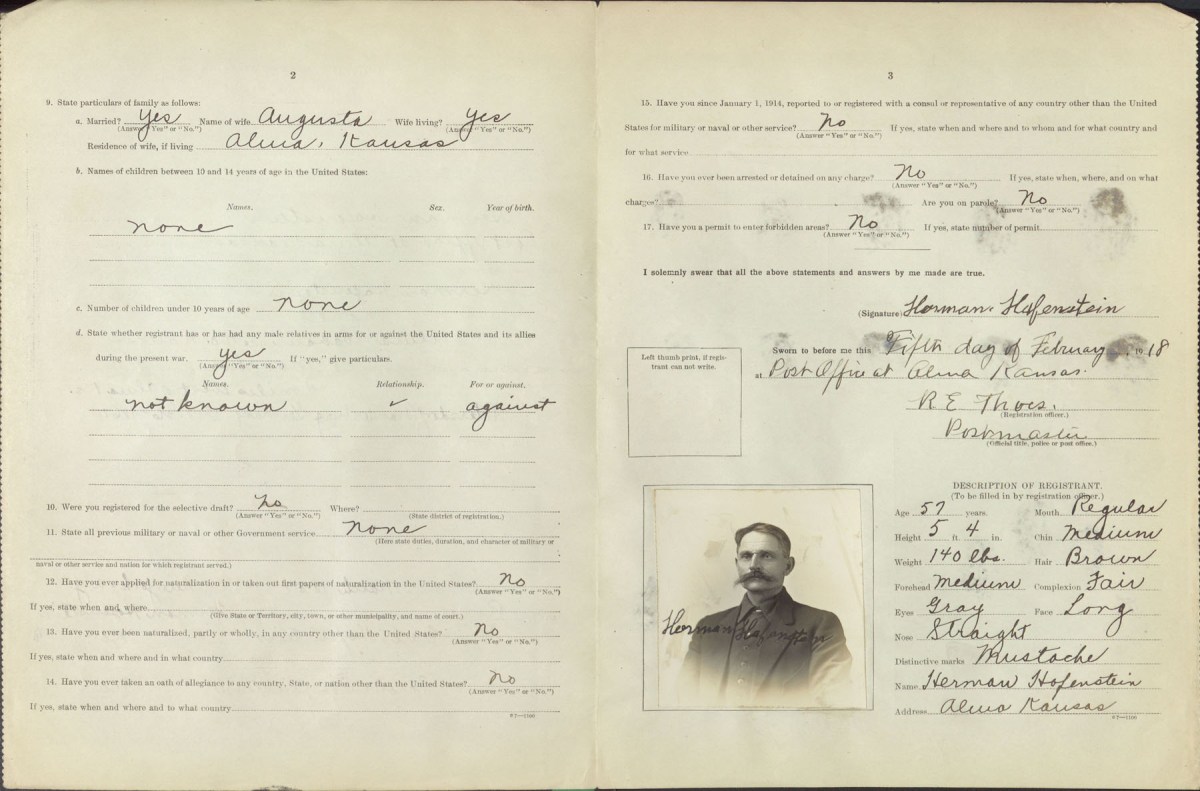 2
9. State particulars of family as follows:
a. Married? Yes Name of wife Augusta Wife living? Yes
(Answer "Yes" or "No.") (Answer "Yes" or "No.")
Residence of wife, if living Alma, Kansas
b. Names of children between 10 and 14 years of age in the United States:
Names. Sex. Year of birth.
none
c. Number of children under 10 years of age none
d. State whether registrant has or has had any male relatives in arms for or against the United States and its allies
during the present war. yes If "yes," give particulars.
(Answer "Yes" or "No.")
Names. Relationship. For or against.
not known ✓ against
10. Were you registered for the selective draft? No Where?
(Answer "Yes" or "No.") (State district of registration.)
11. State all previous military or naval or other Government service none
(Here state duties, duration, and character of military or
naval or other service and nation for which registrant served.)
12. Have you ever applied for naturalization in or taken out first papers of naturalization in the United States? No
(Answer "Yes" or "No.")
If yes, state when and, where
(Give State or Territory, city, town, or other municipality, and name of court.)
13. Have you ever been naturalized, partly or wholly, in any country other than the United States? No
(Answer "Yes" or "No.")
If yes, state when and where and in what country
14. Have you ever taken an oath of allegiance to any country, State, or nation other than the United States? No
(Answer "Yes" or "No.")
If yes, state when and where and to what country
3
15. Have you since January 1, 1914, reported to or registered with a consul or representative of any country other than the United
States for military or naval or other service? No If yes, state when and where and to whom and for what country and
(Answer "Yes" or "No.")
for what service
16. Have you ever been arrested or detained on any charge? No If yes, state when, where, and on what
(Answer "Yes" or "No.")
charges? Are you on parole? No
(Answer "Yes" or "No.")
17. Have you a permit to enter forbidden areas? No If yes, state number of permit
(Answer "Yes" or "No.")
I solemnly swear that all the above statements and answers by me made are true.
(Signature) Herman Hofenstein
Left thumb print, if regis-
trant can not write.
Sworn to before me this Fifth day of February, 1918
at Post Office at Alma Kansas.
R E Thoes.
(Registration officer.)
Postmaster
(Official title, police or post office.)
Herman Hofenstein
DESCRIPTION OF REGISTRANT.
(To be filled in by registration officer.)
Age 57 years. Mouth Regular
Height 5 ft. 4 in. Chin Medium
Weight 140 lbs. Hair Brown
Forehead Medium Complexion Fair
Eyes Gray Face Long
Nose Straight
Distinctive marks Mustache
Name Herman Hofenstein
Address Alma Kansas